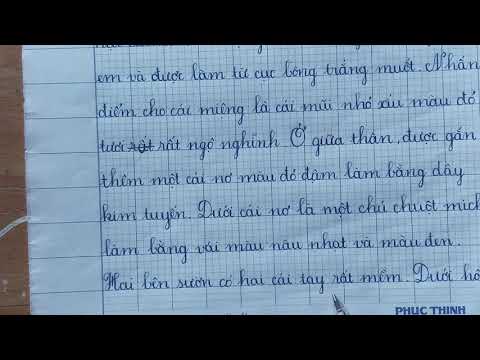 em và được làm từ cục bông trắng muốt. Nhấn
điểm cho cái miệng là cái mũi nhỏ xíu màu đỏ
tươi rất rất ngộ nghĩnh Ở giữa thân, được gắn
thêm một cái nơ màu đỏ đậm làm bằng dây
kim tuyến. Dưới cái nơ là một chú chuột mick
làm bằng vải màu nâu nhạt và màu đen.
Hai bên sườn có hai cái tay rất mềm. Dưới hô
PHUC THINH